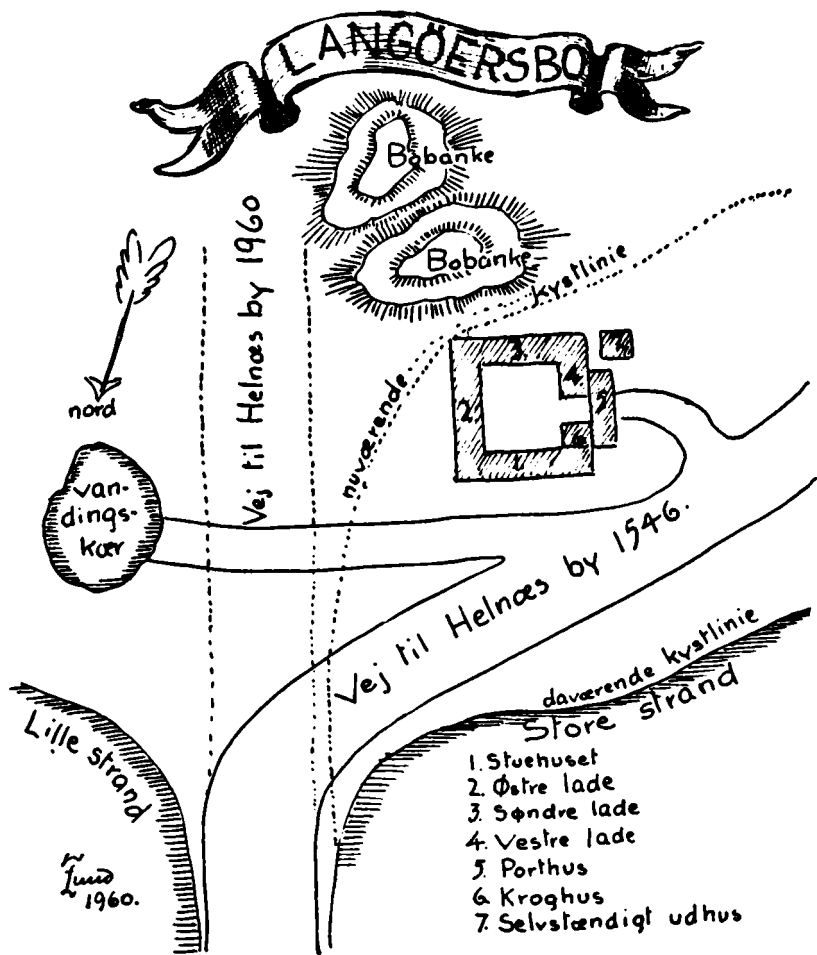 LANGÖERSBO
Bobanke
Bobanke
Vej til Helnæs by 1960
kystlinie
nuværende
nord
3
7
4
2
5
6
1
van-
dings-
kær
Vej til Helnæs by 1546.
daværende kystlinie
Store strand
Lille strand
1. Stuehuset
2. Østre lade
3. Søndre lade
4. Vestre lade
5. Porthus
6. Kroghus
7. Selvstændigt udhus
Lund
1960.